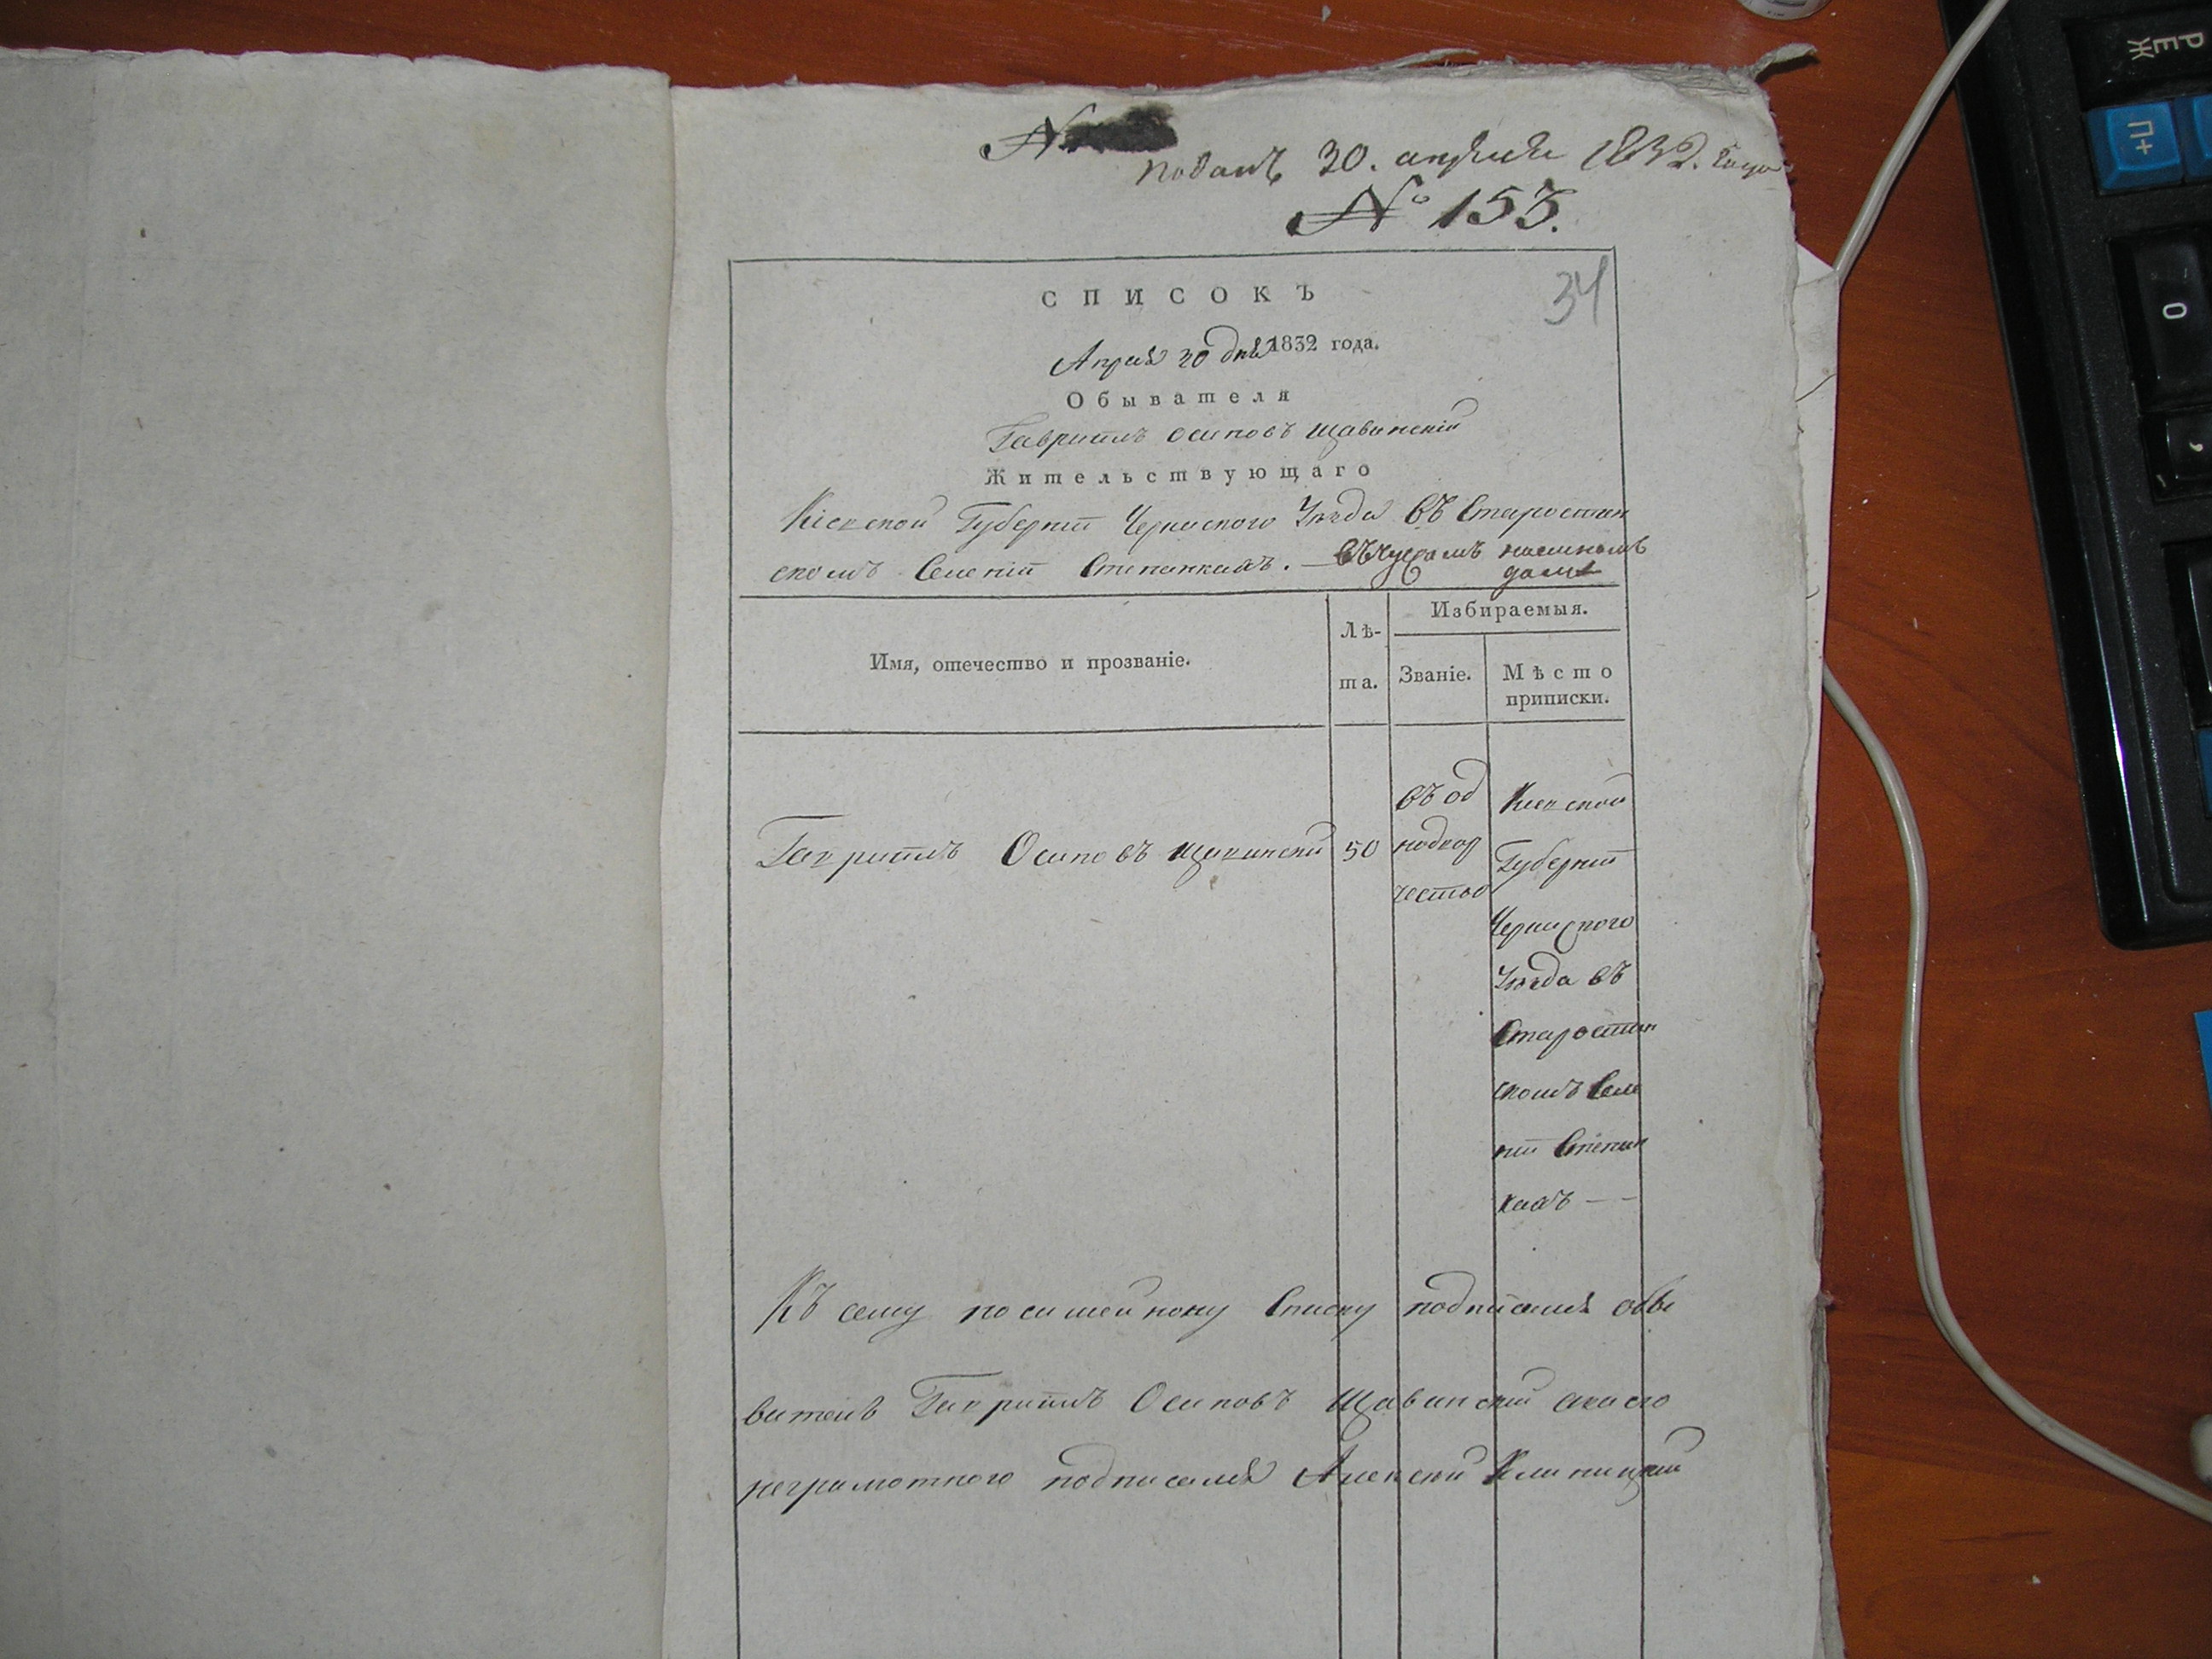 №
поданъ 30. апреля 1832. года
№ 153.
34
СПИСОКЪ
Апреля 30 дня 1832 года.
Обывателя
Гавриилъ Осиповъ Щавинскій
Жительствующаго
Кіевской Губерніи Черкаского Уезда въ Старостин
скомъ Селеніи Степанкахъ. — въ чужомъ наемномъ
доме
Избираемыя.
Лѣ-
та.
Имя, отечество и прозваніе.
Званіе.
Мѣсто
приписки.
Гавриилъ Осиповъ Щавинский
50
въ од
нодвор
чество
Киевской
Губерніи
Черкаского
Уезда въ
Старостин
скомъ Селе
нии Степан
кахъ — —
Къ сему посимейному Списку подписался обы
ватель Гавриилъ Осиповъ Щавинский а за его
неграмотного подписался Алексей Клипицкий
РЕ
Ж
П+
0
,